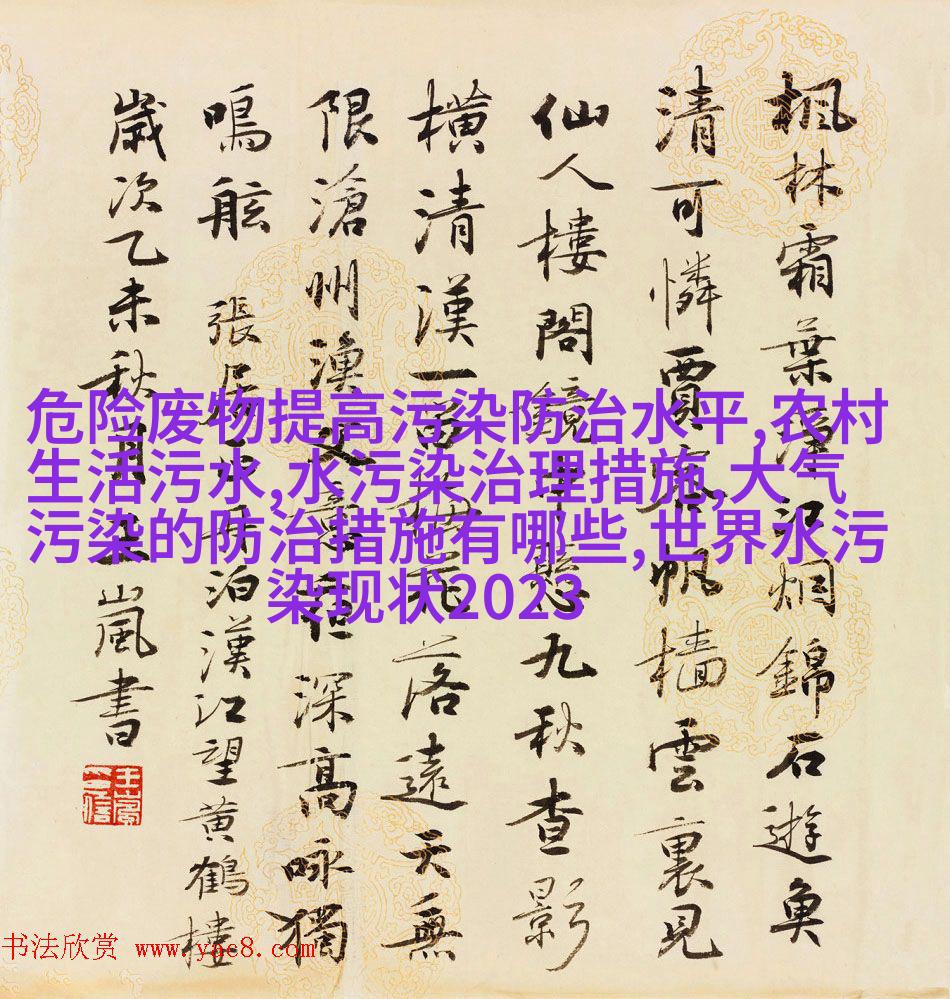 楓林霜葉淨江烟錦石遊魚
清可憐賈客帆檣雲裏見
仙人樓閣鏡中懸九秋查影
橫清漢一笛梅花落遠天無
限滄州漁父意夜深高咏獨
鳴舷 張居正舟泊漢江望黃鶴樓
歲次乙未秋月嵐書
危险废物提高污染防治水平,农村
生活污水,水污染治理措施,大气
污染的防治措施有哪些,世界水污
染现状2023
书法欣赏 www.yac8.com